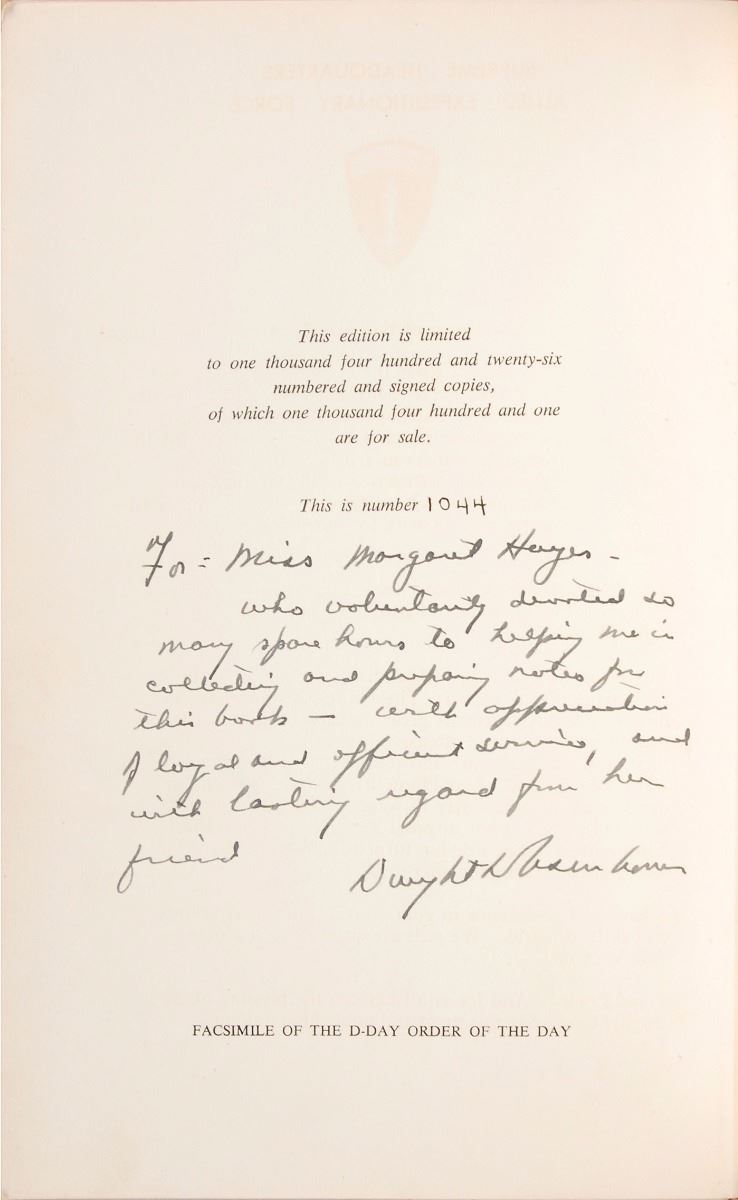 This edition is limited
to one thousand four hundred and twenty-six
numbered and signed copies,
of which one thousand four hundred and one
are for sale.
This is number 1044
For = Miss Margaret Hayes -
who voluntarily devoted so
many spare hours to helping me in
collecting and preparing notes for
this book — with appreciation
of loyal and efficient service, and
with lasting regard from her
friend
Dwight D Eisenhower
FACSIMILE OF THE D-DAY ORDER OF THE DAY